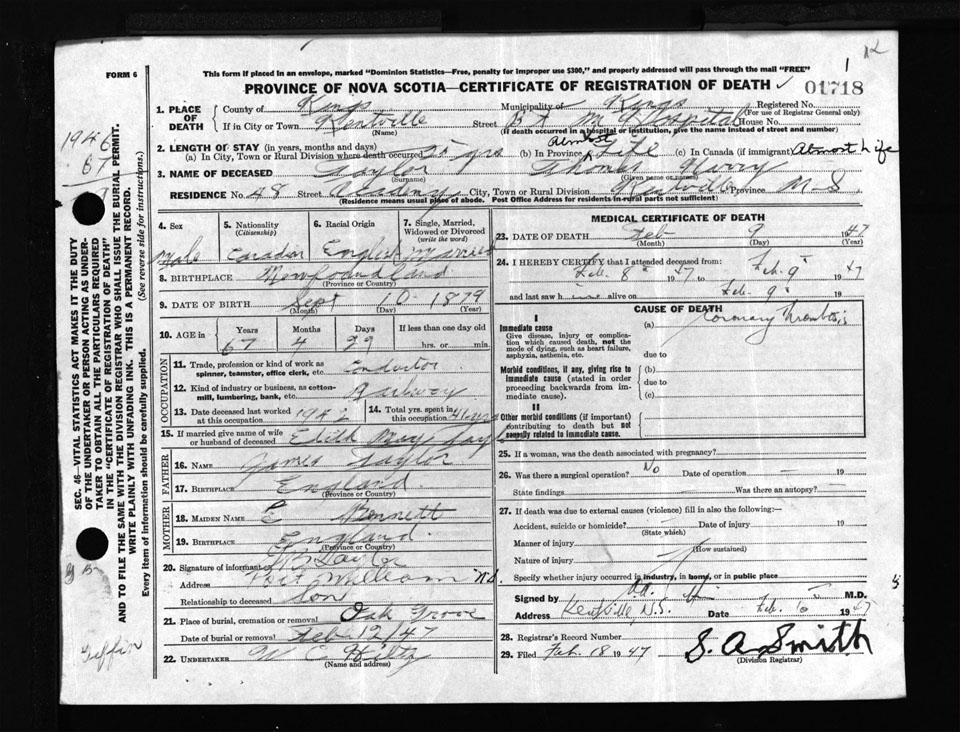 12
1
FORM 6
This form if placed in an envelope, marked "Dominion Statistics—Free, penalty for improper use $300," and properly addressed will pass through the mail "FREE"
PROVINCE OF NOVA SCOTIA—CERTIFICATE OF REGISTRATION OF DEATH
01718
1946
67
SEC. 46—VITAL STATISTICS ACT MAKES IT THE DUTY
OF THE UNDERTAKER OR PERSON ACTING AS UNDER-
TAKER TO OBTAIN ALL THE PARTICULARS REQUIRED
IN THE "CERTIFICATE OF REGISTRATION OF DEATH"
AND TO FILE THE SAME WITH THE DIVISION REGISTRAR WHO SHALL ISSUE THE BURIAL PERMIT.
WRITE PLAINLY WITH UNFADING INK. THIS IS A PERMANENT RECORD.
Every item of Information should be carefully supplied. (See reverse side for instructions.)
1. PLACE OF DEATH
County of Kings Municipality of Kings Registered No.
(For use of Registrar General only)
If in City or Town Kentville Street B F M Hospital House No.
(Name) (If death occurred in a hospital or institution, give the name instead of street and number)
2. LENGTH OF STAY (in years, months and days)
(a) In City, Town or Rural Division where death occurred 25 yrs (b) In Province Almost Life (c) In Canada (if immigrant) Almost Life
3. NAME OF DECEASED Taylor Thomas Harry
(Surname) (Given name or names)
RESIDENCE No. 48 Street Academy City, Town or Rural Division Kentville Province N S
(Residence means usual place of abode. Post Office Address for residents in rural parts not sufficient)
4. Sex Male
5. Nationality (Citizenship) Canadian
6. Racial Origin English
7. Single, Married, Widowed or Divorced (write the word) Married
8. BIRTHPLACE Newfoundland
(Province or Country)
9. DATE OF BIRTH Sept 10 1879
(Month) (Day) (Year)
10. AGE in Years Months Days If less than one day old
67 4 29 hrs. or min.
OCCUPATION
11. Trade, profession or kind of work as spinner, teamster, office clerk, etc. Conductor
12. Kind of industry or business, as cotton-mill, lumbering, bank, etc. Railway
13. Date deceased last worked at this occupation 1942
14. Total yrs. spent in this occupation 41 yrs
15. If married give name of wife or husband of deceased Edith May Taylor
FATHER
16. NAME James Taylor
17. BIRTHPLACE England
(Province or Country)
MOTHER
18. MAIDEN NAME E Bennett
19. BIRTHPLACE England
(Province or Country)
20. Signature of informant Taylor
Address Port William N.S.
Relationship to deceased Son
21. Place of burial, cremation or removal Oak Grove
Date of burial or removal Feb 12/47
22. UNDERTAKER W C Hiltz
(Name and address)
MEDICAL CERTIFICATE OF DEATH
23. DATE OF DEATH Feb 9 1947
(Month) (Day) (Year)
24. I HEREBY CERTIFY that I attended deceased from
Feb. 8 1947 to Feb. 9 1947
and last saw h im alive on Feb. 9 19
CAUSE OF DEATH
I
Immediate cause
Give disease, injury or complication which caused death, not the mode of dying, such as heart failure, asphyxia, asthenia, etc.
(a) Coronary Thrombosis
due to
Morbid conditions, if any, giving rise to immediate cause (stated in order proceeding backwards from immediate cause).
(b)
due to
(c)
II
Other morbid conditions (if important) contributing to death but not causally related to immediate cause.
25. If a woman, was the death associated with pregnancy?
26. Was there a surgical operation? No Date of operation 19
State findings Was there an autopsy?
27. If death was due to external causes (violence) fill in also the following:—
Accident, suicide or homicide? Date of injury 19
(State which)
Manner of injury
(How sustained)
Nature of injury
Specify whether injury occurred in industry, in home, or in public place
Signed by M.D.
Address Kentville N.S. Date Feb. 1947
28. Registrar's Record Number
29. Filed Feb. 18 1947 S. A. Smith
(Division Registrar)